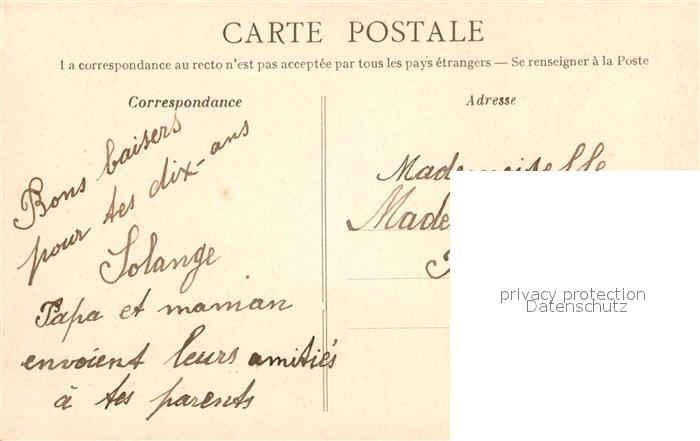 CARTE POSTALE
La correspondance au recto n'est pas acceptée par tous les pays étrangers — Se renseigner à la Poste
Correspondance
Bons baisers
pour tes dix-ans
Solange
Papa et maman
envoient leurs amitiés
à tes parents
Adresse
Mademoiselle
privacy protection
Datenschutz